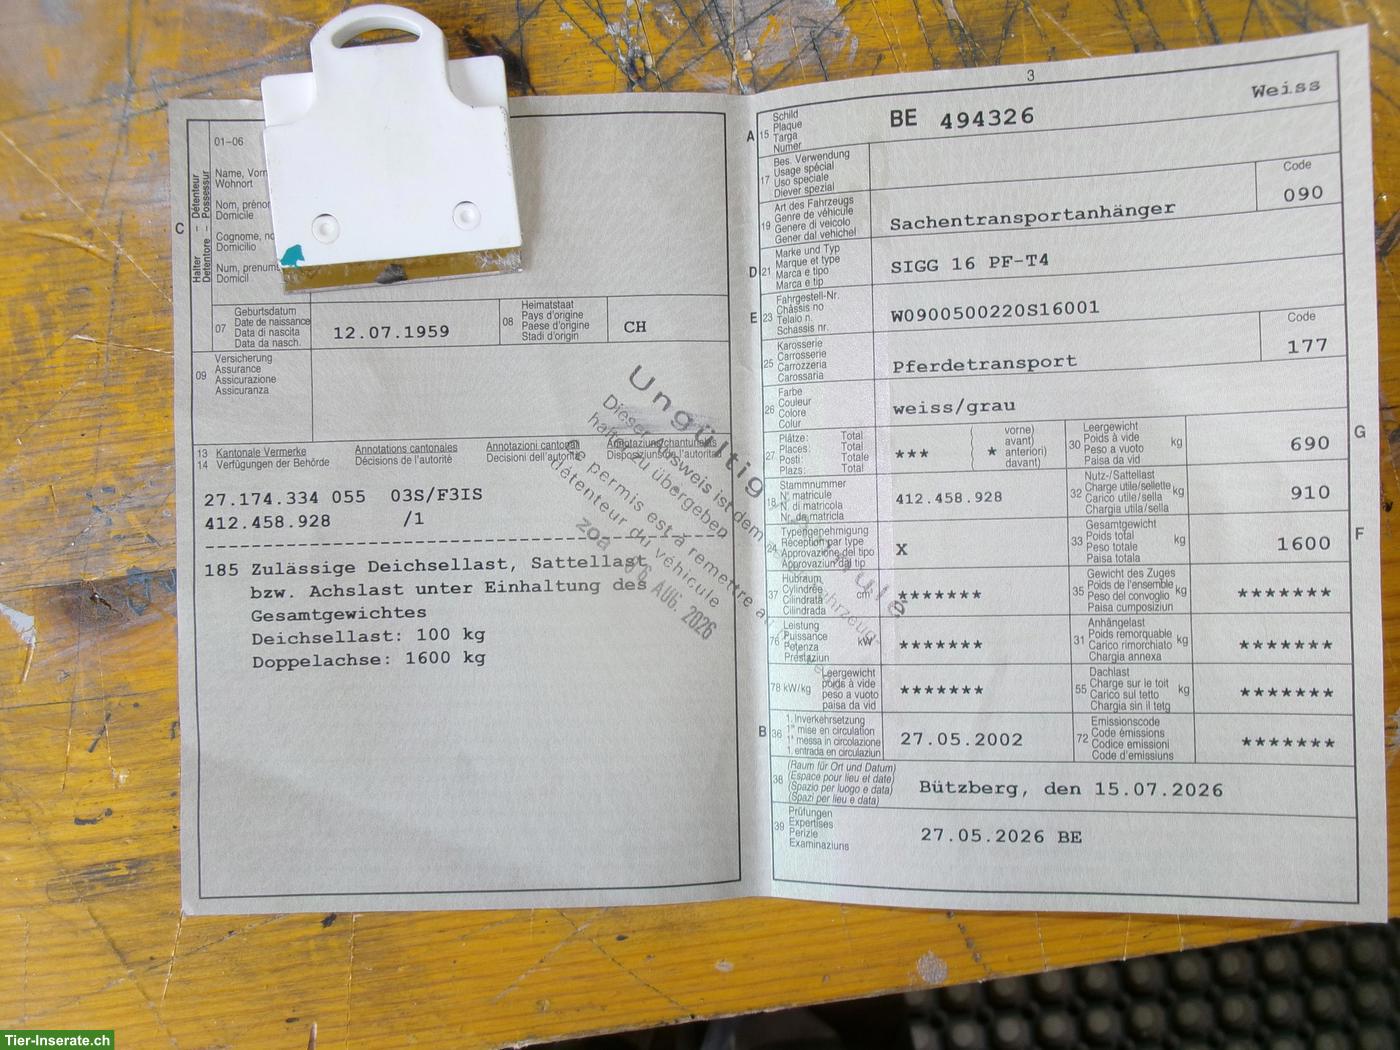 01-06
Name, Vorn
Wohnort
Nom, prénor
Domicile
Cognome, no
Domicilio
Num, prenums
Domicil
C
Halter – Détenteur
Detentore – Possessur
07
Geburtsdatum
Date de naissance
Data di nascita
Data da nasch.
12.07.1959
08
Heimatstaat
Pays d'origine
Paese d'origine
Stadi d'origin
CH
09
Versicherung
Assurance
Assicurazione
Assicuranza
13 Kantonale Vermerke Annotations cantonales Annotazioni cantonali Annotaziuns chantunalas
14 Verfügungen der Behörde Décisions de l'autorité Decisioni dell'autorità Disposiziuns da l'autoritad
27.174.334 055 03S/F3IS
412.458.928 /1
185 Zulässige Deichsellast, Sattellast
bzw. Achslast unter Einhaltung des
Gesamtgewichtes
Deichsellast: 100 kg
Doppelachse: 1600 kg
Ungültig
Dieser Ausweis ist dem
halter zu übergeben
Le permis est à remettre au
détenteur du véhicule
06. AUG. 2026
3
A
15
Schild
Plaque
Targa
Numer
BE 494326
Weiss
17
Bes. Verwendung
Usage spécial
Uso speciale
Diever spezial
19
Art des Fahrzeugs
Genre de véhicule
Genere di veicolo
Gener dal vehichel
Sachentransportanhänger
Code
090
D
21
Marke und Typ
Marque et type
Marca e tipo
Marca e tip
SIGG 16 PF-T4
E
23
Fahrgestell-Nr.
Châssis no
Telaio n.
Schassis nr.
W0900500220S16001
25
Karosserie
Carrosserie
Carrozzeria
Carossaria
Pferdetransport
Code
177
26
Farbe
Couleur
Colore
Colur
weiss/grau
27
Plätze: Total
Places: Total
Posti: Totale
Plazs: Total
***
( vorne)
( avant)
* anteriori)
( davant)
30
Leergewicht
Poids à vide
Peso a vuoto
Paisa da vid
kg
690
G
18
Stammnummer
N° matricule
N. di matricola
Nr. da matricla
412.458.928
32
Nutz-/Sattellast
Charge utile/sellette
Carico utile/sella
Chargia utila/sella
kg
910
24
Typengenehmigung
Réception par type
Approvazione del tipo
Approvaziun dal tip
X
33
Gesamtgewicht
Poids total
Peso totale
Paisa totala
kg
1600
F
37
Hubraum
Cylindrée
Cilindrata
Cilindrada
cm³
*******
35
Gewicht des Zuges
Poids de l'ensemble
Peso del convoglio
Paisa cumposiziun
kg
*******
76
Leistung
Puissance
Potenza
Prestaziun
kW
*******
31
Anhängelast
Poids remorquable
Carico rimorchiato
Chargia annexa
kg
*******
78 kW/kg
Leergewicht
poids à vide
peso a vuoto
paisa da vid
*******
55
Dachlast
Charge sur le toit
Carico sul tetto
Chargia sin il tetg
kg
*******
B
36
1. Inverkehrsetzung
1re mise en circulation
1a messa in circolazione
1. entrada en circulaziun
27.05.2002
72
Emissionscode
Code émissions
Codice emissioni
Code d'emissiuns
*******
38
(Raum für Ort und Datum)
(Espace pour lieu et date)
(Spazio per luogo e data)
(Spazi per lieu e data)
Bützberg, den 15.07.2026
39
Prüfungen
Expertises
Perizie
Examinaziuns
27.05.2026 BE
Tier-Inserate.ch